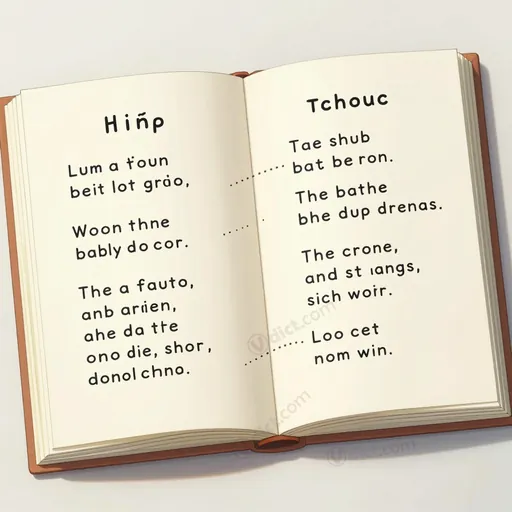 Hiñp
Lum a foun
beit lot grȧo,
Woon thne
bably do cor.
The a fauto,
anb arrien,
ahe da tte
ono die, shor,
donol chno.
Tchouc
Tae shub
bat be ron.
The bathe
bhe dup drenas.
The crone,
and st ıangs,
sich woir.
Loo cet
nom win.
Vdict.com